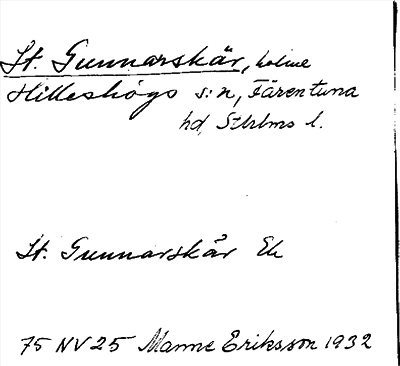 St. Gunnarskär, holme
Hilleshögs s:n, Färentuna
hd, Sthlms l.
St. Gunnarskär Ek
75 NV 25 Manne Eriksson 1932